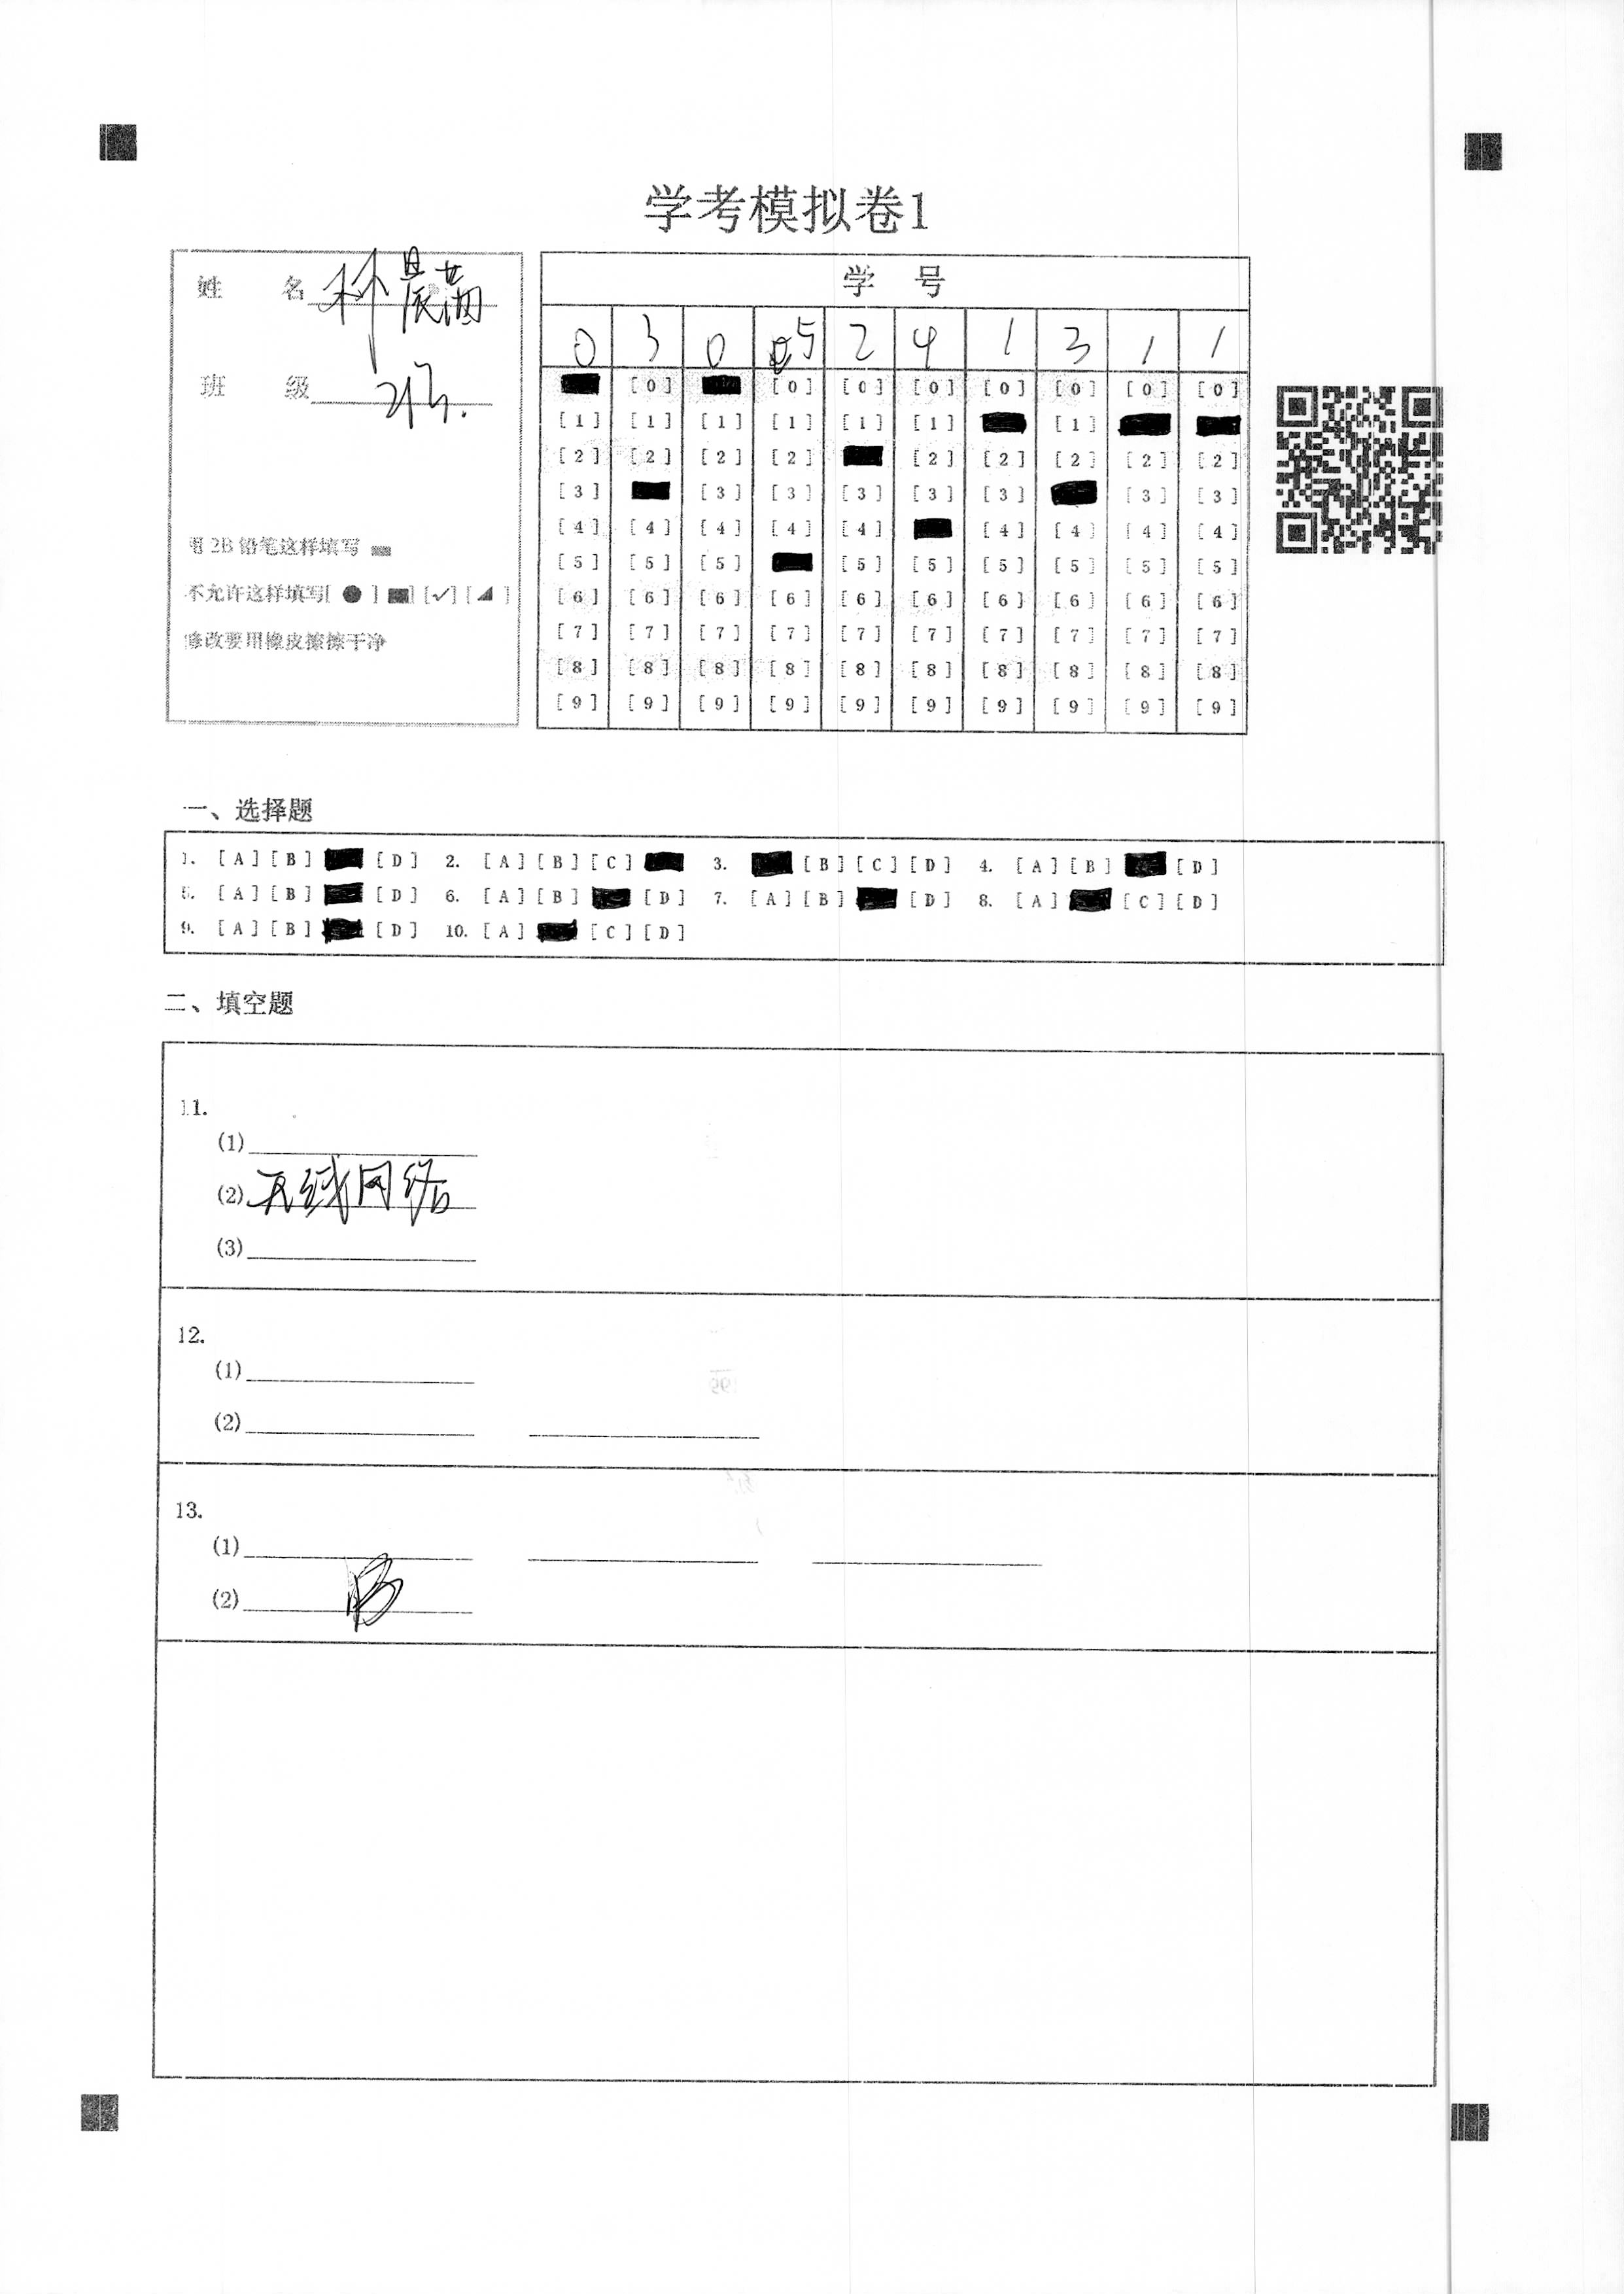 学考模拟卷1
姓 名 林晨
班 级
用2B铅笔这样填写
不允许这样填写[ ● ] [✓] [ ]
修改要用橡皮擦擦干净
学 号
0 3 0 5 2 4 1 3 1 1
[0] [0] [0] [0] [0] [0] [0] [0]
[1] [1] [1] [1] [1] [1] [1]
[2] [2] [2] [2] [2] [2] [2] [2] [2]
[3] [3] [3] [3] [3] [3] [3] [3]
[4] [4] [4] [4] [4] [4] [4] [4] [4]
[5] [5] [5] [5] [5] [5] [5] [5] [5]
[6] [6] [6] [6] [6] [6] [6] [6] [6] [6]
[7] [7] [7] [7] [7] [7] [7] [7] [7] [7]
[8] [8] [8] [8] [8] [8] [8] [8] [8] [8]
[9] [9] [9] [9] [9] [9] [9] [9] [9] [9]
一、选择题
1. [A] [B] [D] 2. [A] [B] [C] 3. [B] [C] [D] 4. [A] [B] [D]
5. [A] [B] [D] 6. [A] [B] [D] 7. [A] [B] [D] 8. [A] [C] [D]
9. [A] [B] [D] 10. [A] [C] [D]
二、填空题
11.
(1)
(2) 无线网络
(3)
12.
(1)
(2)
13.
(1)
(2)